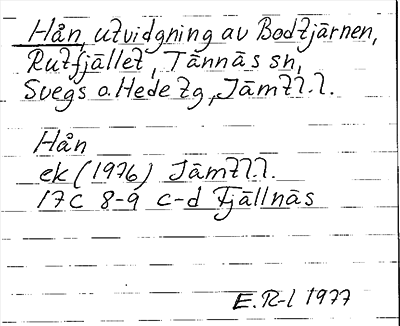 Hån, utvidgning av Bodtjärnen,
Rutfjället, Tännäs sn,
Svegs o. Hede tg, Jämtl. l.
Hån
ek (1976) Jämtl. l.
17C 8-9 c-d Fjällnäs
E. R-l 1977